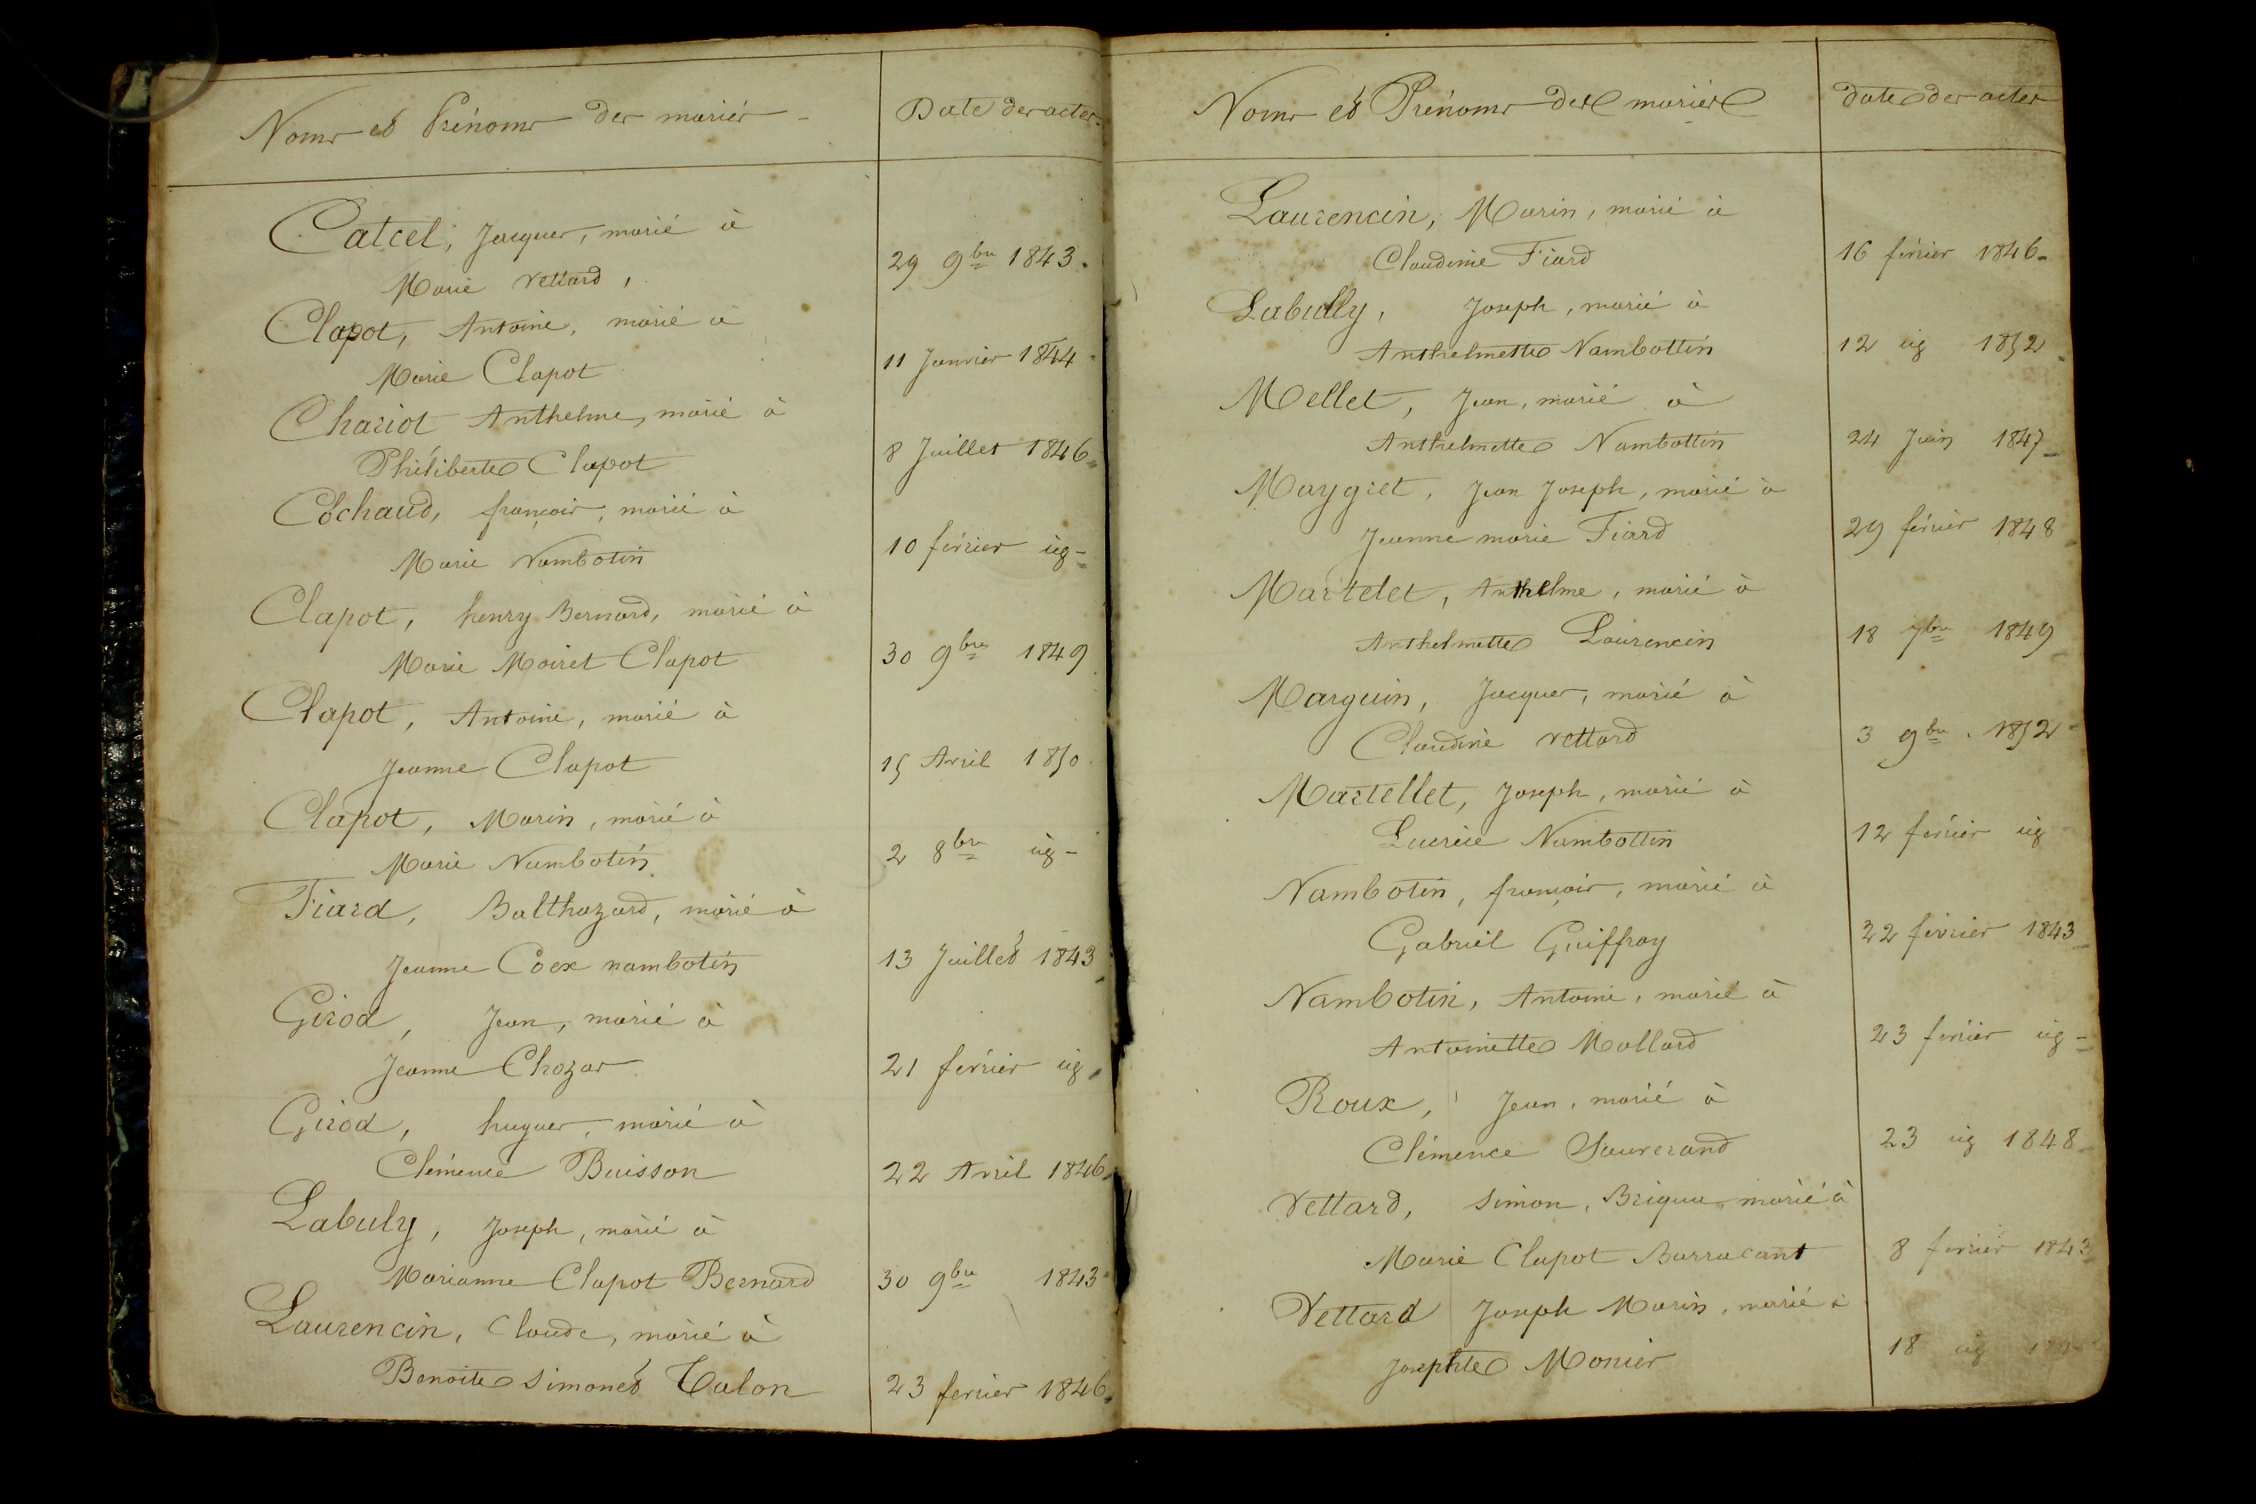 Noms et Prénoms des mariés - Date des actes
Catcel, Jacques, marié à
Marie Vettard, 29 9bre 1843.
Clapot, Antoine, marié à
Marie Clapot 11 Janvier 1844
Chariot Anthelme, marié à
Philiberte Clapot 8 Juillet 1846
Cochaud, françois, marié à
Marie Nambotin 10 février ig-
Clapot, henry Bernard, marié à
Marie Moiret Clapot 30 9bre 1849
Clapot, Antoine, marié à
Jeanne Clapot 15 Avril 1850
Clapot, Marin, marié à
Marie Nambotin 2 8bre ig-
Fiard, Balthazard, marié à
Jeanne Coex nambotin 13 Juillet 1843
Girod, Jean, marié à
Jeanne Chozas 21 février ig
Girod, hugues, marié à
Clémence Buisson 22 Avril 1846
Labuly, Joseph, marié à
Marianne Clapot Bernard 30 9bre 1843
Laurencin, Claude, marié à
Benoite Simonet Talon 23 fevrier 1846
Noms et Prénoms des mariés date des actes
Laurencin, Marin, marié à
Claudine Fiard 16 février 1846
Labully, Joseph, marié à
Anthelmette Nambottin 12 ig 1852
Mellet, Jean, marié à
Anthelmette Nambottin 24 Juin 1847
Maygret, Jean Joseph, marié à
Jeanne marie Fiard 29 février 1848
Martelet, Anthelme, marié à
Anthelmette Laurencin 18 7bre 1849
Marguin, Jacques, marié à
Claudine Vettard 3 9bre 1852
Martellet, Joseph, marié à
Lucrèce Nambottin 12 février ig
Nambotin, françois, marié à
Gabriel Guiffray 22 février 1843
Nambotin, Antoine, marié à
Antoinette Mollard 23 février ig-
Roux, Jean, marié à
Clémence Sauverand 23 ig 1848
Vettard, Simon, Brigue, marié à
Marie Clapot Barracant 8 fevrier 1843
Vettard Joseph Marin, marié à
Josephte Monier 18 ig